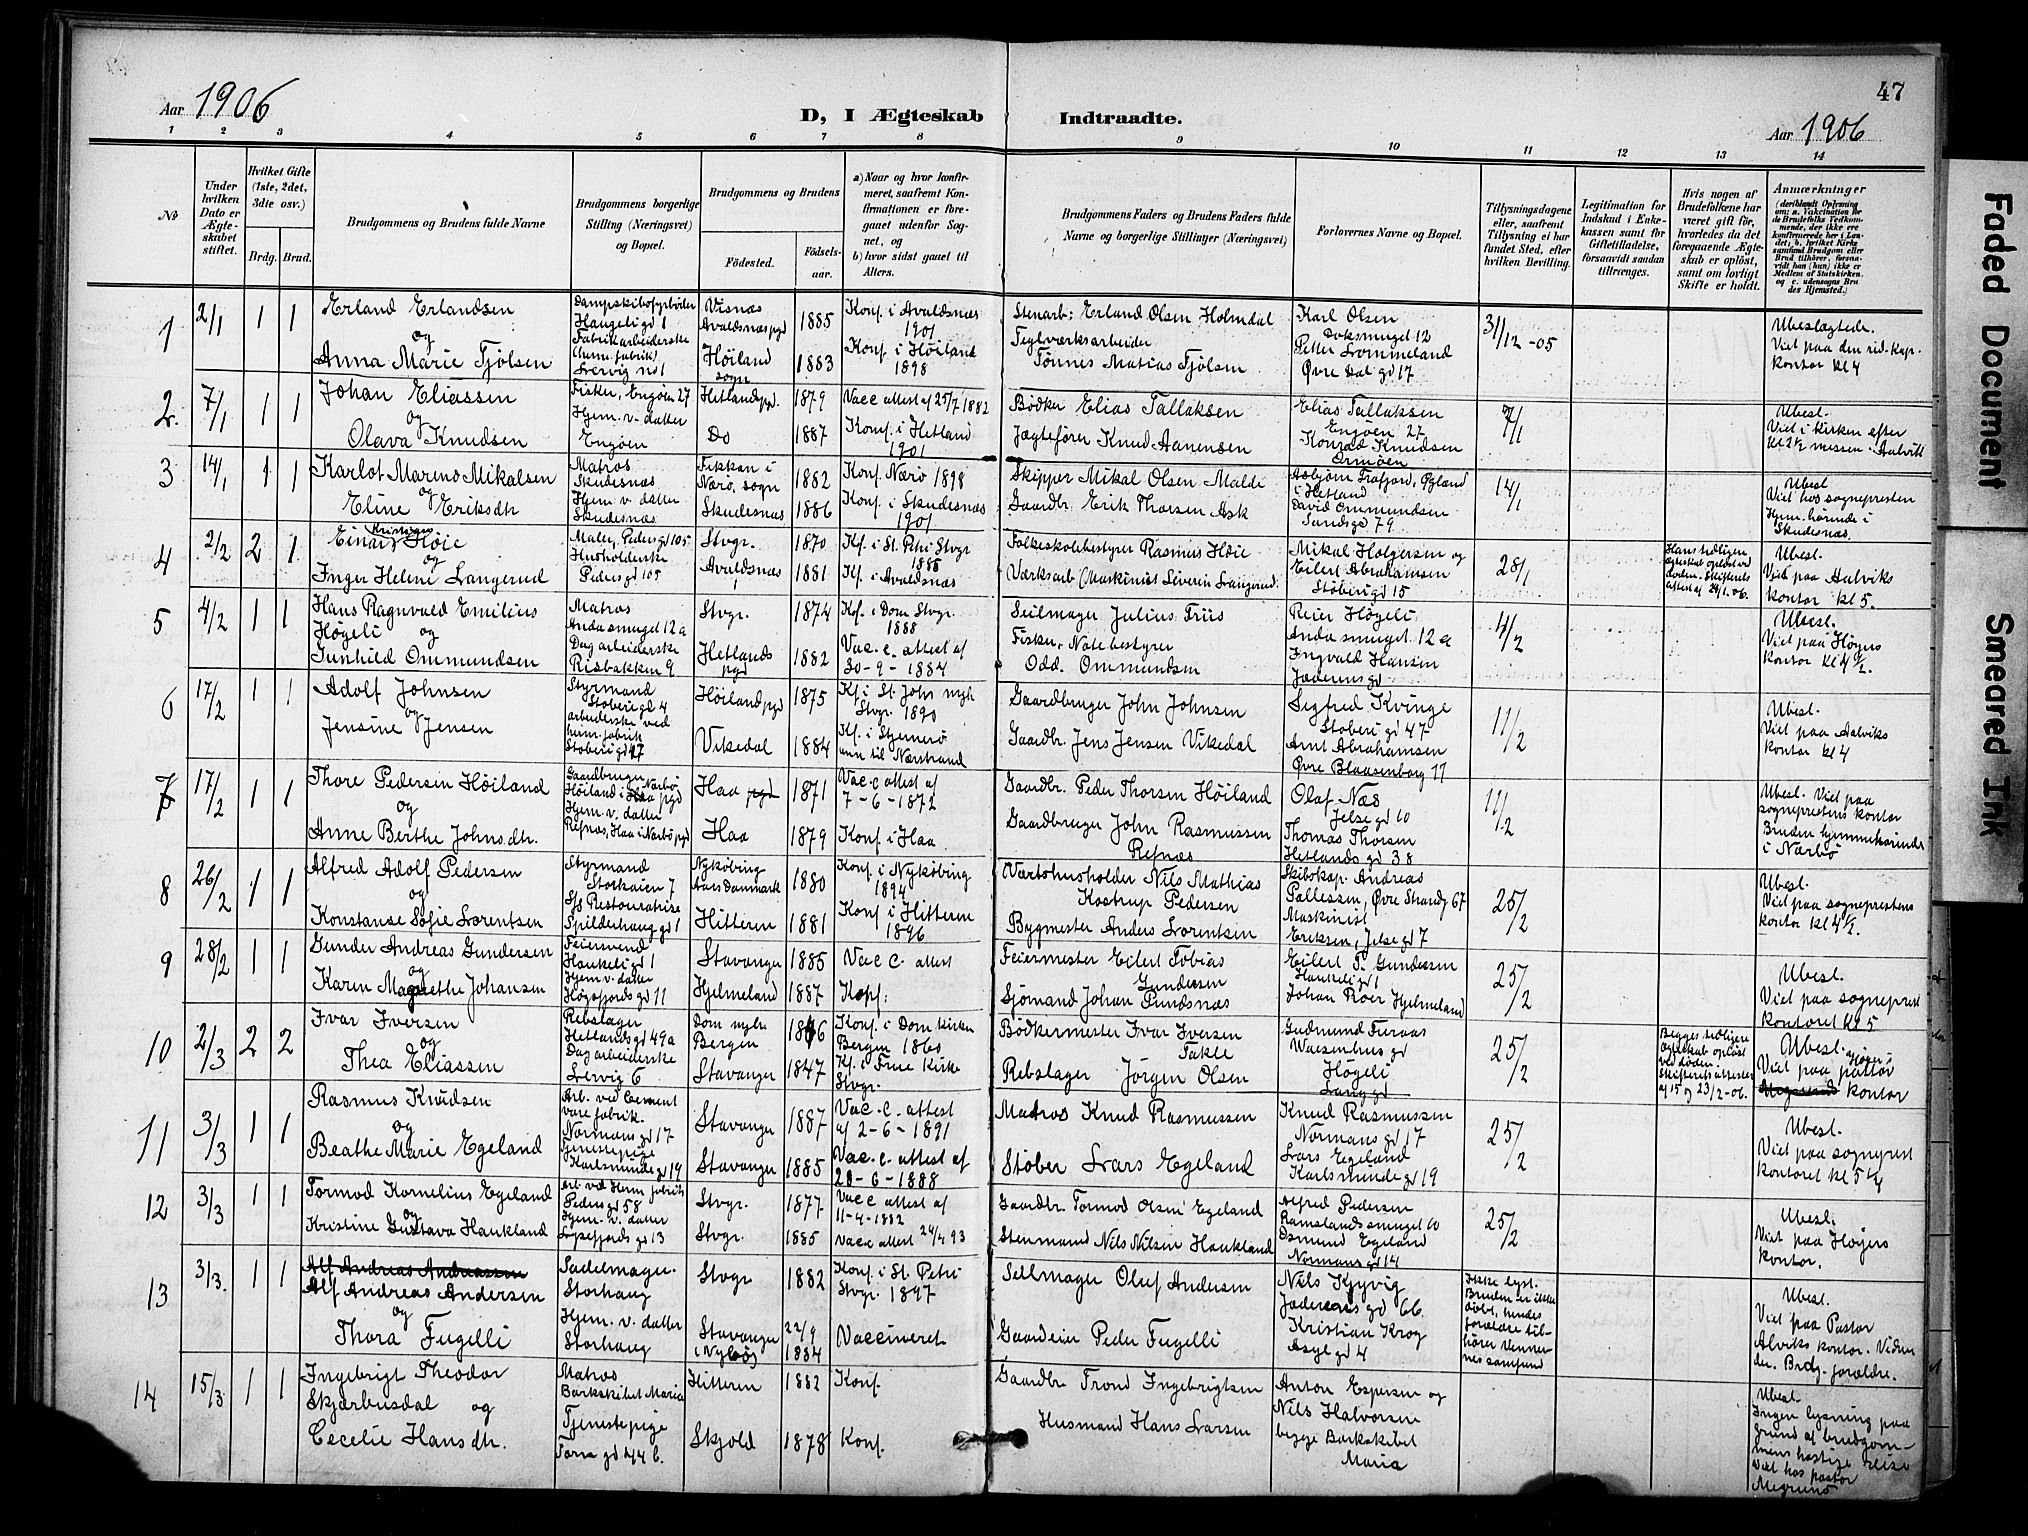 47
Aar 1906
D, I Ægteskab Indtraadte.
Aar 1906
1 2 3 4 5 6 7 8 9 10 11 12 13 14
No
Under hvilken Dato er Ægteskabet stiftet.
Hvilket Gifte (1ste, 2det, 3die osv.)
Brdg. Brud.
Brudgommens og Brudens fulde Navne
Brudgommens borgerlige Stilling (Næringsvei) og Bopæl.
Brudgommens og Brudens
Födested.
Födselsaar.
a) Naar og hvor konfirmeret, saafremt Konfirmationen er foregaaet udenfor Sognet, og
b) hvor sidst gaaet til Alters.
Brudgommens Faders og Brudens Faders fulde Navne og borgerlige Stillinger (Næringsvei)
Forlovernes Navne og Bopæl.
Tillysningsdagene eller, saafremt Tillysning ei har fundet Sted, efter hvilken Bevilling.
Legitimation for Indskud i Enkekassen samt for Giftetilladelse, forsaavidt saadan tiltrænges.
Hvis nogen af Brudefolkene har været gift før, hvorledes da det foregaaende Ægteskab er oplöst, samt om lovligt Skifte er holdt.
Anmærkninger
1 2/1 1 1
Erland Erlandsen
og
Anna Marie Tjølsen
Dampskibsfyrbøder
Haugeli gd 1
Fabrikarbeiderske
(herm. fabrik)
Lervig no 1
Visnæs
Avaldsnæs pgd
Høiland
sogn
1885
1883
Konf. i Avaldsnæs
1901
Konf. i Høiland
1898
Stenarb: Erland Olsen Holmdal
Teglværksarbeider
Tønnes Matias Tjølsen
Karl Olsen
Doksmuget 12
Petter Lommeland
Øvre Dal gd 17
31/12-05
Ubeslægtede.
Viet paa den red. kap.
kontor kl 4
2. 7/1 1 1
Johan Eliassen
og
Olava Knudsen
Fisker, Engøen 27
Hjem. v. datter
Engøen
Hetland pgd.
Do
1879
1887
Vacc attest af 25/7 1882
Konf. i Hetland
1901
Bødker Elias Tallaksen
Jægtefører Knud Aanensen
Elias Tallaksen
Engøen 27
Konrad Knudsen
Ormøen
7/1
Ubesl.
Viet i kirken efter
kl 2 1/2 messen. Aalvik
3 14/1 1 1
Karlot Marino Mikalsen
og
Eline Eriksdtr
Matros
Skudesnæs
Hjem. v. datter
Skudesnæs
Nærø, sogn
Skudesnæs
1882
1886
Konf. Nærø 1898
Konf. i Skudesnæs
1901
Skipper Mikal Olsen Malde
Gaardbr. Erik Thorsen Ask
i Hetland
David Ommundsen
Sundgd 79.
14/1
Ubesl
Viet hos sognepresten
Hjem. hørende i
Skudesnæs.
4 2/2 2 1
Einar Høie
og
Inger Helene Langerud
Maler, Pedersgd 105
Husholderske
Pedersgd 105
Stvgr.
Avaldsnæs
1870
1881
Kf. i St. Petri Stvgr
1885
Kf. i Avaldsnæs
Folkeskolebestyrer Rasmus Høie
Værksarb (Maskinist Severin Langerud.
Mikal Holgersen og
Eilert Abrahamsen
Støberigd 15
28/1
Hans tidligere
ægteskab opløst ved
døden. Skifterets
attest af 24/1.06.
Ubesl.
Viet paa Aalviks
kontor kl 5.
5 4/2 1 1
Hans Ragnvald Emilius
Høgeli og
Gunhild Ommundsen
Matros
Andasmuget 12 a
Dagarbeiderske
Risbakken 9
Stvgr.
Hetlands
pgd
1874
1882
Kf. i Dom Stvgr.
1888
Vac. c. attest af
30-9-1884
Seilmager Julius Friis
Fisker, Notebestyrer
Odd. Ommundsen
Reier Høgeli
Andasmuget 12 a
Ingvald Hansen
Jæderensgd
4/2
Ubesl.
Viet paa Høyers
kontor kl 4 1/2.
6 17/2 1 1
Adolf Johnsen
og
Jensine Jensen
Styrmand
Støberigd 4
arbeiderske ved
herm. fabrik
Støberigd 47
Høiland pgd
Vikedal
1875
1884
Kf. i St. Joh. mgh
Stvgr. 1890
Kf. i Stjernerø
ann til Nærstrand
Gaardbruger John Johnsen
Gaardbr. Jens Jensen Vikedal
Sigfred Kvinge
Støberigd 47
Arnt Abrahamsen
Øvre Blaasenborg 17
11/2
Ubesl.
Viet paa Aalviks
kontor kl 4
7 17/2 1 1
Thore Pedersen Høiland
og
Anne Berthe Johnsdtr.
Gaardbruger
Høiland i Haa pgd Nærbø
Hjem. v. datter
Refnæs, Haa i Nærbø pgd
Haa pgd
Haa
1871
1879
Vac. c attest af
7-6-1872
Konf. i Haa
Gaardbr. Peder Thorsen Høiland
Gaardbruger John Rasmussen
Refnæs
Olaf Næs
Jelsegd 10
Thomas Thorsen
Hetlandsgd 38
11/2
Ubesl. Viet paa
sogneprestens kontor
Bruden hjemmehørende
i Nærbø
8 26/2 1 1
Alfred Adolf Pedersen
og
Konstanse Sofie Lorentsen
Styrmand
Storkaien 7
S/s Restauratrise
Spilderhauggd 1
Nykøbing
Aars Danmark
Hitteren
1880
1881
Konf. i Nykøbing
1894
Konf. i Hitterne
1896
Værtshusholder Nils Mathias
Kastrup Pedersen
Bygmester Anders Lorentsen
Skibskap. Andreas
Pallessen, Øvre Strandg 67
Maskinist
Eriksen, Jelsegd 7
25/2
Ubesl.
Viet paa sogneprestens
kontor kl 4 1/2.
9 28/2 1 1
Gunder Andreas Gundersen
og
Karen Magrethe Johansen
Feiersvend
Haukeligd 1
Hjem v. datter
Høgsfjordsgd 11
Stavanger
Hjelmeland
1885
1887
Vac c. attest
Konf:
Feiermester Eilert Tobias
Gundersen
Sjømand Johan Pundsnæs
Eilert T. Gundersen
Haukeligd 1
Johan Roer Hjelmeland
25/2
Ubesl.
Viet paa sogneprest
kontoret kl 5
10 2/3 2 2
Ivar Iversen
og
Thea Eliassen
Rebslager
Hetlandsgd 49a
Dagarbeiderske
Lervig 6
Dom mgh
Bergen
Stavanger
1846
1847
Konf. i Domkirken
Bergen 1860
Kf. i Frue Kirke
Stvgr.
Bødkermester Ivar Iversen
Takle
Rebslager Jörgen Olsen
Gudmund Furaas
Waisenhusgd
Høgeli
Langgd
25/2
Begges tidligere
ægteskab opløst
ved døden.
Skifterets attester
af 15 og 23/2-06.
Ubesl.
Viet paa pastor
kontor
11 3/3 1 1
Rasmus Knudsen
og
Beathe Marie Egeland
Arb. ved Cement
varefabrik.
Normansgd 17
Tjenestepige
Karlsmindegd 19
Stavanger
Stavanger
1887
1885
Vac. c. attest
af 2-6-1891
Vac. c. attest af
28-6-1888
Matros Knud Rasmussen
Støber Lars Egeland
Knud Rasmussen
Normansgd 17
Lars Egeland
Karlsmindegd 19
25/2
Ubesl.
Viet paa sogneprest
kontoret kl 5 1/4
12 3/3 1 1
Tormod Kornelius Egeland
og
Kristine Gustava Haukland
Arb ved Herm fabrik
Pedersgd 58
Hjem. v. datter
Lysefjordsgd 13
Stvgr.
Stvgr.
1877
1885
Vac c attest af
11-4-1882
Vacc attest 24/4 93
Gaardbr. Tormod Olsen Egeland
Stenmand Nils Nilsen Haukland
Alfred Pedersen
Ramslandssmuget 10
Osmund Egeland
Normansgd 14
25/2
Ubesl.
Viet paa Høyers
kontor.
13 3/3. 1 1
Alf Andreas Andreassen
Alf Andreas Andersen
og
Thora Fugelli
Sadelmager
Storhaug
Hjem. v. datter
Storhaug
Stvgr
Stavanger
1882
22/9
1884
Konf. i St. Petri
Stvgr. 1897
Vaccineret
Seilmager Oluf Andersen
Gaardeier Peder Fugelli
Nils Kyvig
Jæderensgd 66.
Kristian Krog
Asylgd 4
Ikke lyst.
Bruden er ikke
døbt, hendes
forældre til-
hører Venner-
nes samfund
Ubesl.
Viet paa Pastor
Alviks kontor. Vidner
de. Brdg. forældre.
14 15/3. 1 1
Ingebrigt Theodor
Skjærbusdal og
Cecelie Hansdtr.
Matros
Barkskibet Maria
Tjenestepige
Tarnegd 44 b.
Hitteren
Skjold
1882
1878
Konf.
Konf.
Gaardbr Trond Ingebrigtsen
Husmand Hans Larsen
Anton Espersen og
Nils Halvorsen
begge Barkskibet
Maria
Ubesl.
Ingen lysning paa
grund af brudgom-
mens hastige reise
Viet hos pastor
Faded Document
Smeared Ink